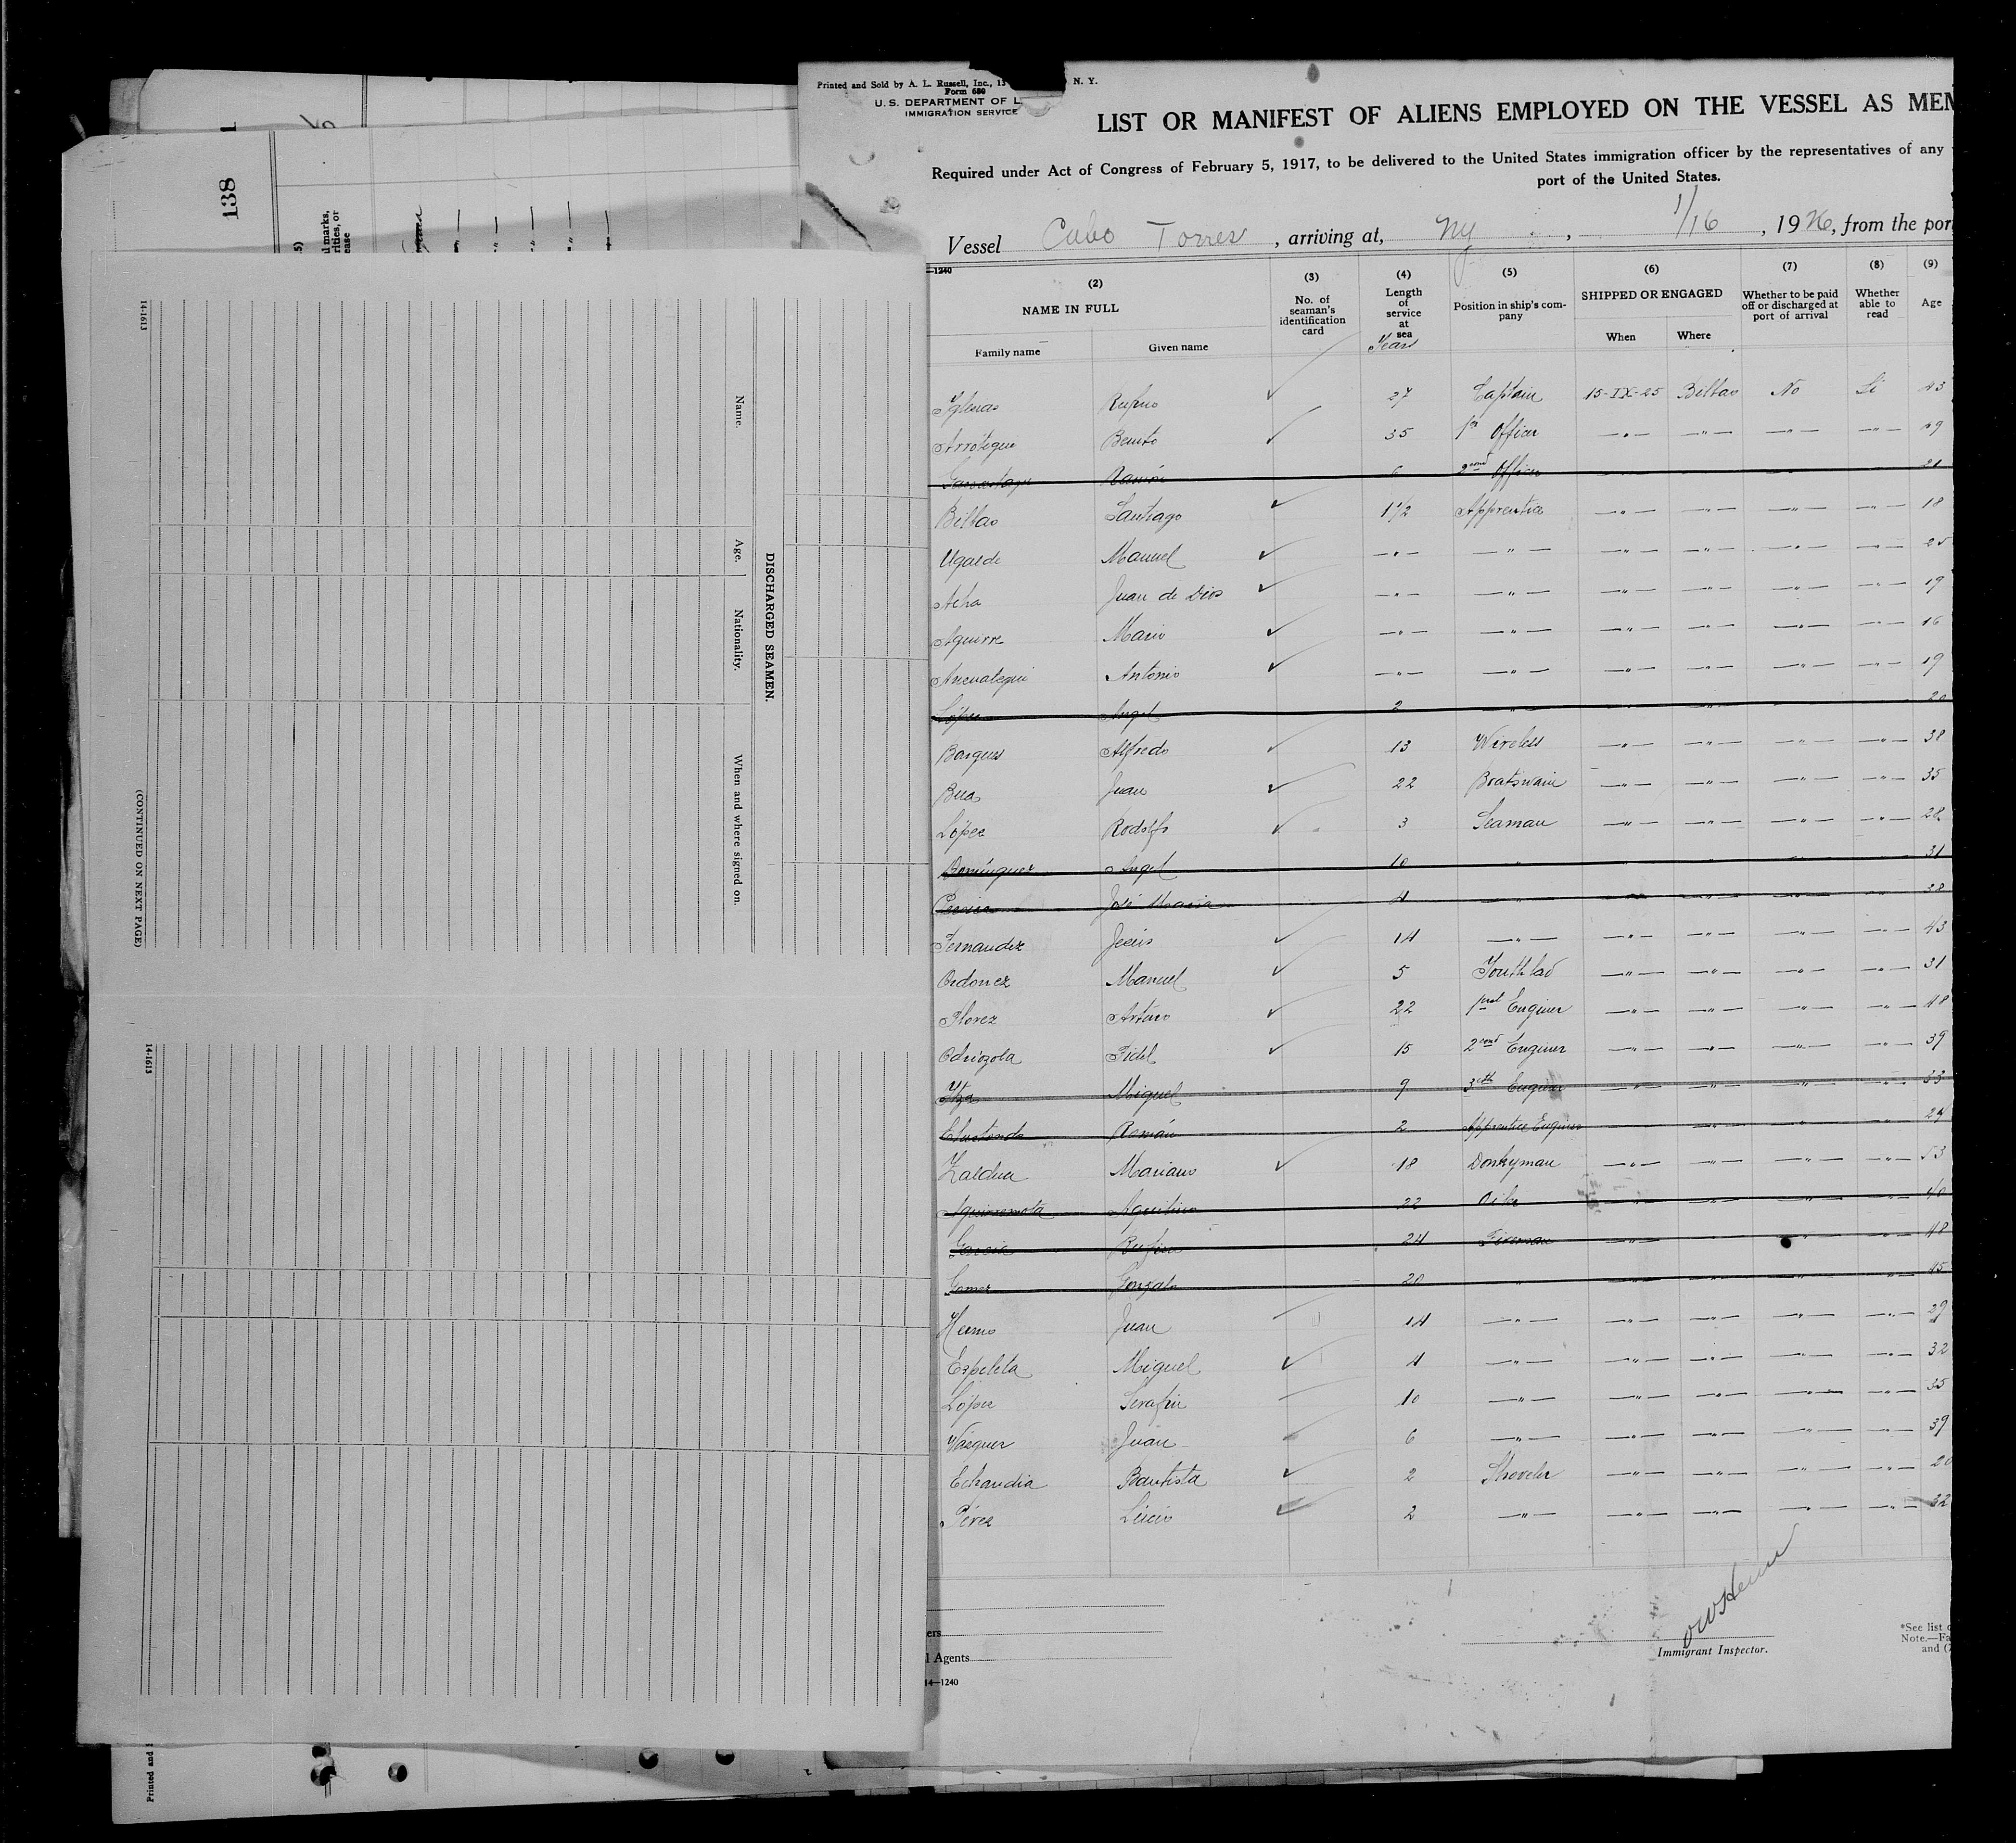 Printed and Sold by A. L. Russell, Inc., 13 N. Y.
Form 680
U. S. DEPARTMENT OF L
IMMIGRATION SERVICE
LIST OR MANIFEST OF ALIENS EMPLOYED ON THE VESSEL AS MEM
Required under Act of Congress of February 5, 1917, to be delivered to the United States immigration officer by the representatives of any
port of the United States.
Vessel Cabo Torres, arriving at, NY, 1/16, 1926, from the por
138
5)
l marks,
rities, or
ease
—1240
(2) (3) (4) (5) (6) (7) (8) (9)
NAME IN FULL
Family name Given name
No. of seaman's identification card
Length of service at sea
Years
Position in ship's company
SHIPPED OR ENGAGED
When Where
Whether to be paid off or discharged at port of arrival
Whether able to read
Age
Iglesias Rufino 27 Captain 15-IX-25 Bilbao No Si 43
Arrótegui Benito 35 1er Officer —"— —"— —"— —"— 49
Ramón 6 2cond Officer 21
Bilbao Santiago 1 1/2 Apprentice —"— —"— —"— —"— 18
Ugalde Manuel —"— —"— —"— —"— —"— —"— 25
Acha Juan de Dios —"— —"— —"— —"— —"— —"— 19
Aguirre Mario —"— —"— —"— —"— —"— —"— 16
Antonio —"— —"— —"— —"— —"— —"— 19
López Angel 2 —"— 20
Alfredo 13 Wireless —"— —"— —"— —"— 38
Bua Juan 22 Boatswain —"— —"— —"— —"— 35
López Rodolfo 3 Seaman —"— —"— —"— —"— 28
Domínguez Angel 10 " 31
José Maria 4 —"— 38
Fernandez Jesús 14 —"— —"— —"— —"— —"— 43
Ordonez Manuel 5 Youth lad —"— —"— —"— —"— 31
Florez Arturo 22 1rst Enginer —"— —"— —"— —"— 48
Odriozola Fidel 15 2cond Enginer —"— —"— —"— —"— 39
Itza Miguel 9 3eth Enginer —"— —"— —"— —"— 33
Román 2 Apprentice Enginer 24
Zaldua Mariano 18 Donkyman —"— —"— —"— —"— 53
Aguirremota Aquilino 22 Oiler 40
Garcia Rufino 24 Fireman 48
Gomez Gonzalo 20 " 45
Hermo Juan 14 —"— —"— —"— —"— —"— 29
Ezpeleta Miguel 4 —"— —"— —"— —"— —"— 32
López Serafin 10 —"— —"— —"— —"— —"— 35
Vázquez Juan 6 —"— —"— —"— —"— —"— 39
Echandia Bautista 2 Shoveler —"— —"— —"— —"— 20
Pérez Lucio 2 —"— —"— —"— —"— —"— 32
ers
l Agents
14—1240
Immigrant Inspector.
*See list o
Note.—Fa
and (
14-1613
DISCHARGED SEAMEN.
Name. Age. Nationality. When and where signed on.
(CONTINUED ON NEXT PAGE)
14-1613
Printed and